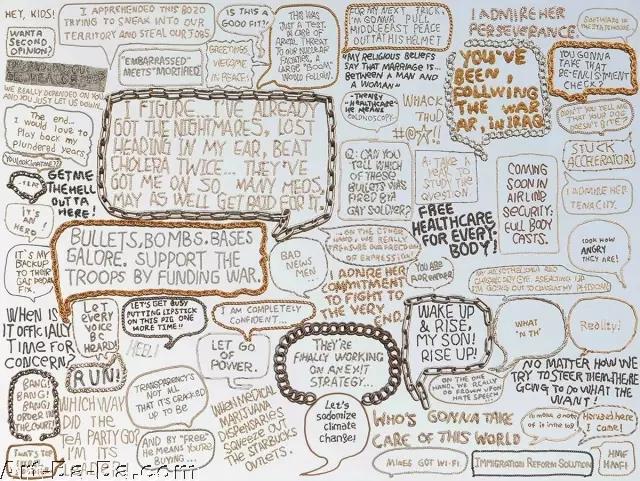 HEY, KIDS!
WANT A
SECOND
OPINION?
I APPREHENDED THIS BOZO
TRYING TO SNEAK INTO OUR
TERRITORY AND STEAL OUR JOBS.
IS THIS A
GOOD FIT?
THIS WAS
JUST A TEST.
IN CASE OF
THREAT
TO OUR
FRONTIER,
A LARGE "BOOM"
WOULD FOLLOW.
FOR MY NEXT TRICK,
I'M GONNA PULL
MIDDLE EAST PEACE
OUTTA HIS HELMET
I ADMIRE HER
PERSEVERANCE.
SOFTWARE IN
"EMBARRASSED"
MEETS "MORTIFIED"
GREETINGS,
IN PEACE!
"MY RELIGIOUS BELIEFS
SAY THAT MARRIAGE IS...
BETWEEN A MAN AND
A WOMAN"
"HEALTHCARE"
HE MEANS
WHACK
THUD
YOU'VE
BEEN
FOLLWING
THE WAR
AR, IN IRAQ
YOU GONNA
TAKE THAT
RE-ENLISTMENT
CHECK?
DIDN'T YOU TELL ME
THAT YOUR DOG
DOESN'T BITE?
WE REALLY DEPENDED ON YOU
AND YOU JUST LET US DOWN.
The end...
I would love to
Play back my
plundered years!
I FIGURE... I'VE ALREADY
GOT THE NIGHTMARES, LOST
HEADING IN MY EAR, BEAT
CHOLERA TWICE... THEY'VE
GOT ME ON SO MANY MEDS,
MAY AS WELL GET PAID FOR IT.
Q: CAN YOU
TELL WHICH
OF THESE
BULLETS WAS
FIRED BY A
GAY SOLDIER?
A: TAKE
YEAR TO
STUDY THE
QUESTION
COMING
SOON IN
AIRLINE
SECURITY:
FULL BODY
CASTS.
STUCK
ACCHERATOR!
I ADMIRE HER
TENACITY.
GET ME
THE HELL
OUTTA
HERE!
IT'S AN
HERO!
FREE
HEALTHCARE
FOR EVERY-
BODY!
LOOK HOW
ANGRY
THEY ARE!
BULLETS, BOMBS, BASES
GALORE. SUPPORT THE
TROOPS BY FUNDING WAR.
IT'S MY
BACKUP
TO THEIR
FIX.
BAD
NEWS
MEN
ON THE OTHER
HAND, WE REALLY
FREEDOM
OF EXPRESSION.
I ADMIRE HER
COMMITMENT
TO FIGHT TO
THE VERY
END.
YOU ARE
WHEN IS
IT OFFICIALLY
TIME FOR
CONCERN?
LET
EVERY
VOICE BE
HEARD!
LET'S GET BUSY
PUTTING LIPSTICK
ON THIS PIG ONE
MORE TIME!!
I AM COMPLETELY
CONFIDENT...
LET GO
OF
POWER.
THEY'RE
FINALLY WORKING
ON AN EXIT
STRATEGY...
WAKE UP
& RISE,
MY SON!
RISE UP!
WHAT
"N TH"
Reality!
NO MATTER HOW WE
TRY TO STEER THEM, THEY'RE
GOING TO DO WHAT THE
WANT!
BANG!
BANG!
BANG!
ORDER IN
THE COURT!
RUN!
WHICH WAY
DID THE
TEA PARTY GO?
I'M ITS
TRANSPARENCY'S
NOT ALL
THAT IT'S CRACKED
UP TO BE
AND BY "FREE"
HE MEANS YOU'RE
BUYING...
WHEN MEDICAL
MARIJUANA
DISPENSARIES
SQUEEZE OUT
THE STARBUCKS
OUTLETS.
Let's
sodomize
climate
change!
ON THE ONE
HAND, WE REALLY
DO FROWN UPON
HATE SPEECH
WHO'S GONNA TAKE
CARE OF THIS WORLD
MINES GOT WI-FI.
IMMIGRATION REFORM SOLUTION
I come!